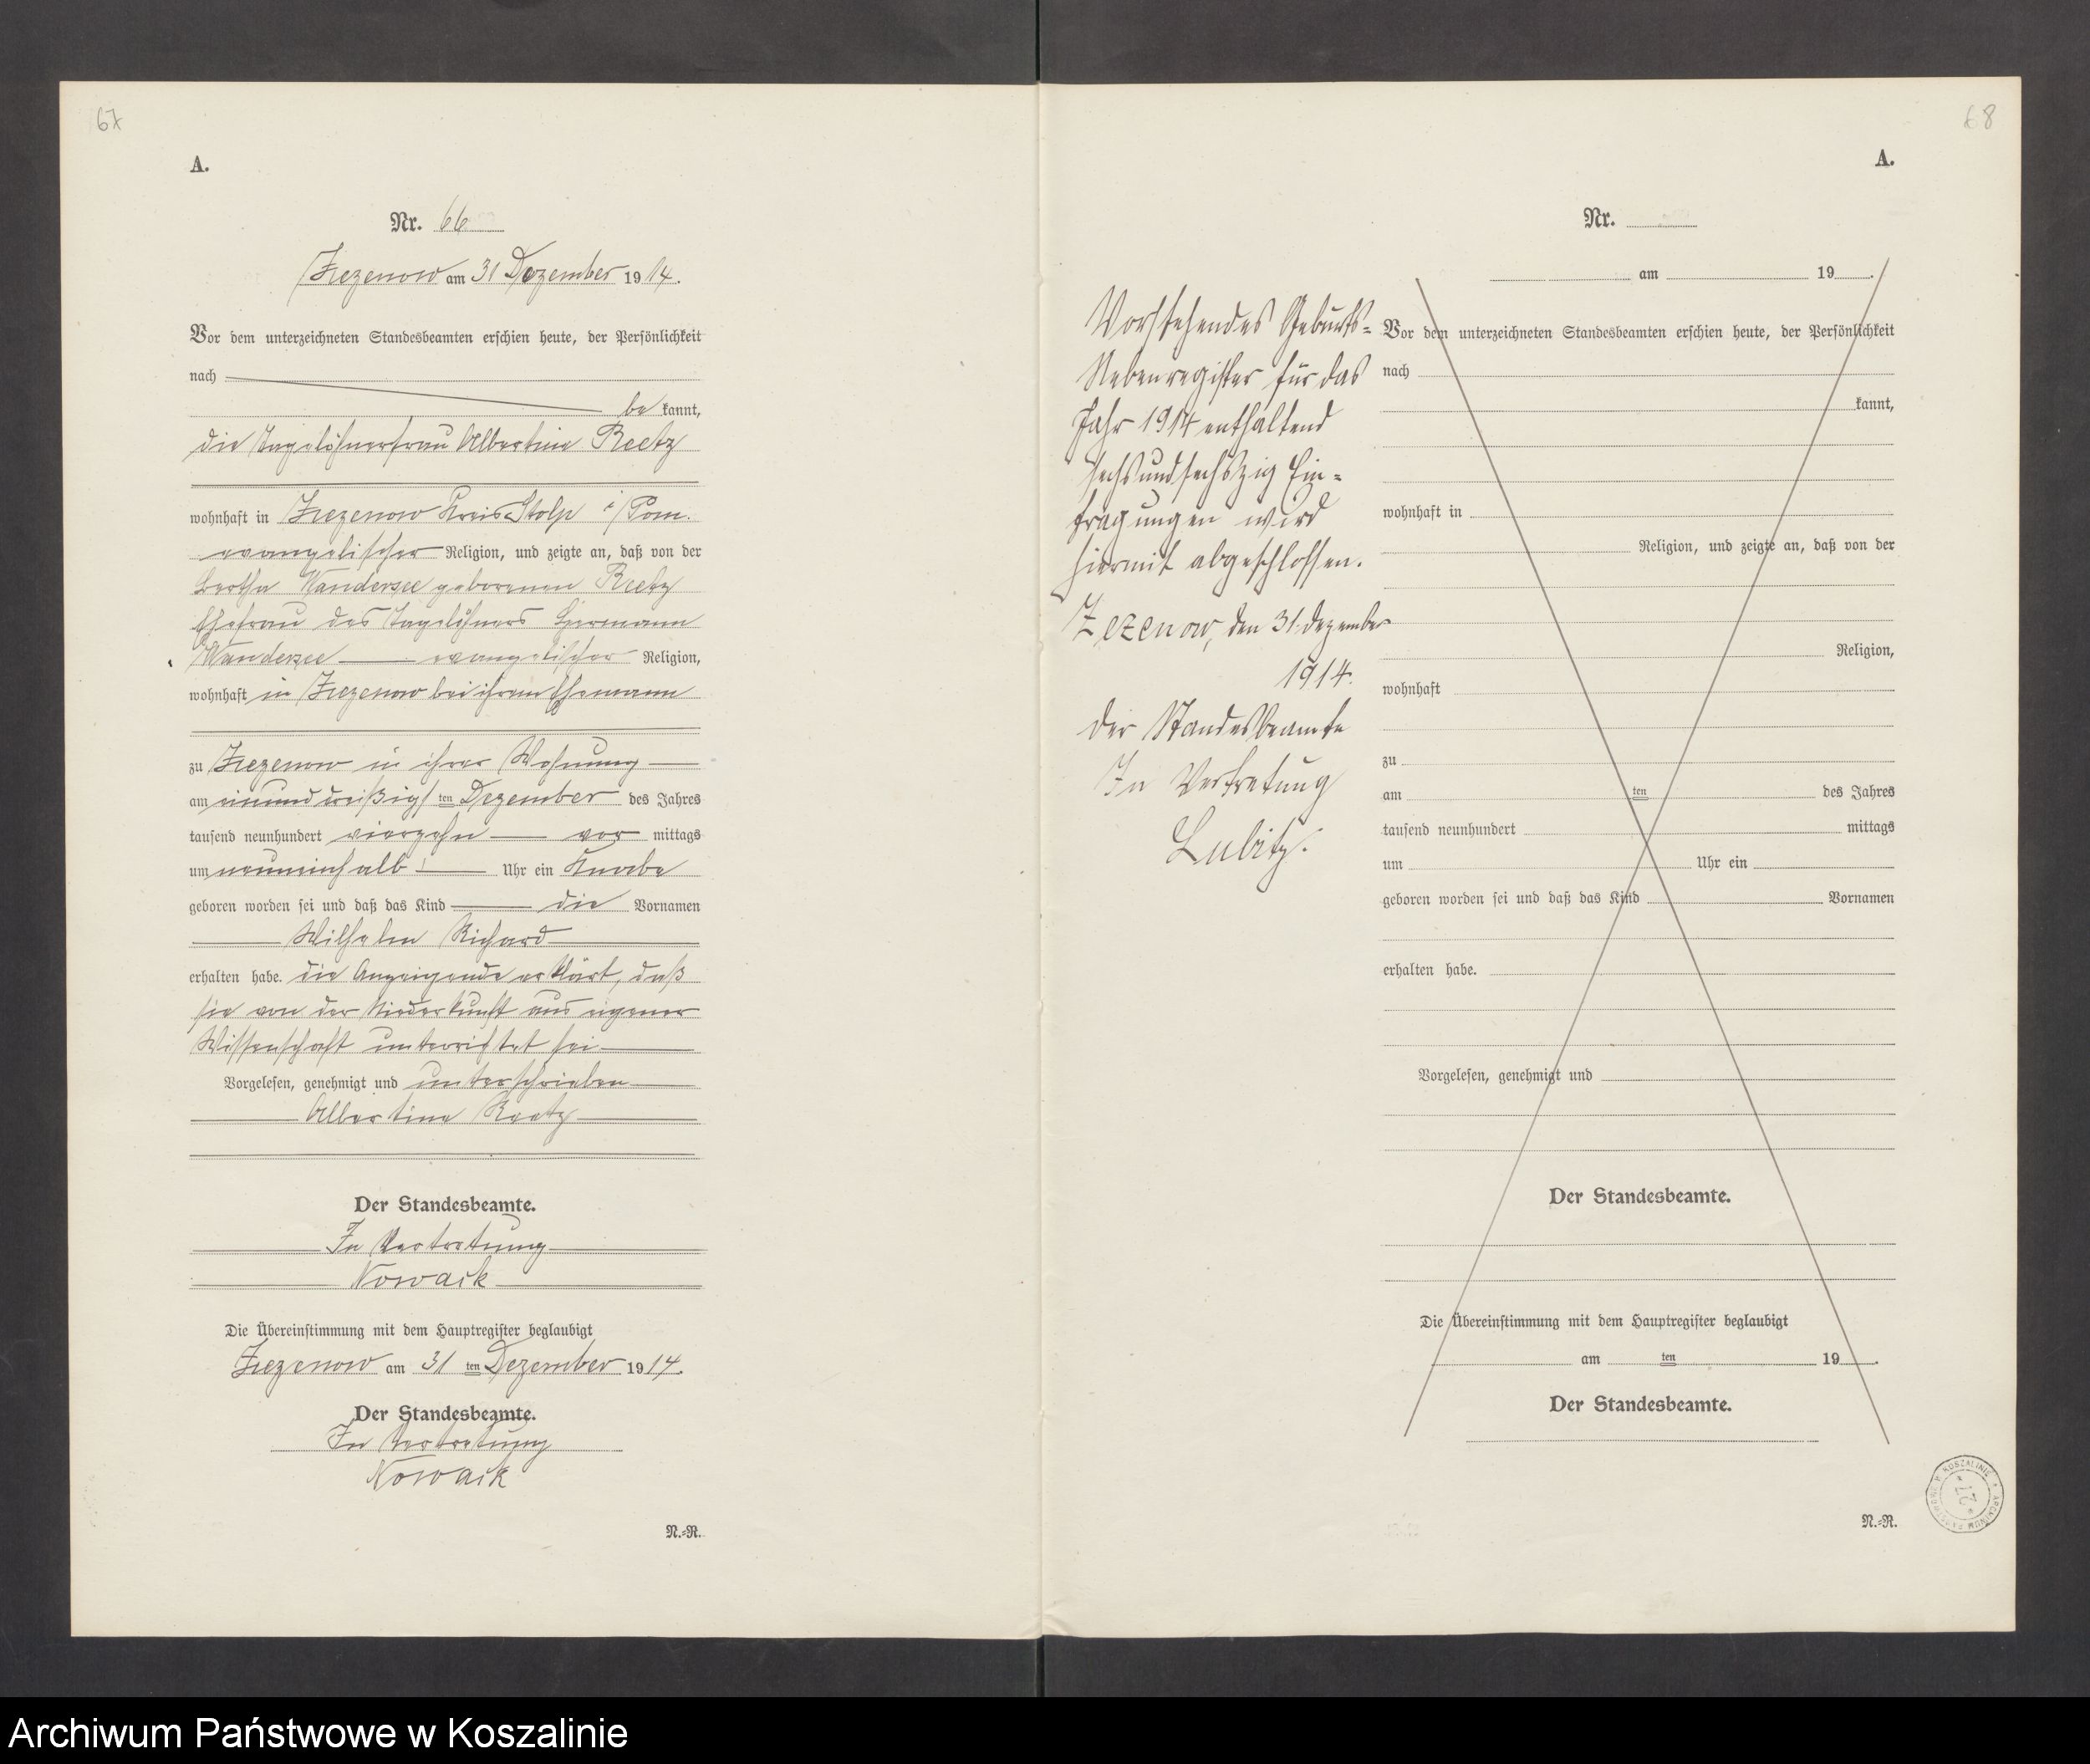 67
A.
Nr. 66
Zezenow am 31 Dezember 1914.
Vor dem unterzeichneten Standesbeamten erschien heute, der Persönlichkeit
nach
be kannt,
die Tagelöhnerfrau Albertine Reetz
wohnhaft in Zezenow Kreis Stolp i/Pom.
evangelischer Religion, und zeigte an, daß von der
Bertha Wandersee geborenen Reetz
Ehefrau des Tagelöhners Hermann
Wandersee evangelischer Religion,
wohnhaft in Zezenow bei ihrem Ehemann
zu Zezenow in ihrer Wohnung
am einunddreißigsten Dezember des Jahres
tausend neunhundert vierzehn vor mittags
um neuneinhalb Uhr ein Knabe
geboren worden sei und daß das Kind die Vornamen
Wilhelm Richard
erhalten habe. die Anzeigende erklärt, daß
sie von der Niederkunft aus eigener
Wissenschaft unterrichtet sei
Vorgelesen, genehmigt und unterschrieben
Albertine Reetz
Der Standesbeamte.
In Vertretung
Nowack
Die Übereinstimmung mit dem Hauptregister beglaubigt
Zezenow am 31 ten Dezember 1914.
Der Standesbeamte.
In Vertretung
Nowack
N.=R.
68
A.
Nr.
am 19 .
Vorstehendes Geburts=
Nebenregister für das
Jahr 1914 enthaltend
sechsundsechszig Ein=
tragungen wird
hiermit abgeschlossen.
Zezenow, den 31. Dezember
1914.
Der Standesbeamte
In Vertretung
Lubitz.
Vor dem unterzeichneten Standesbeamten erschien heute, der Persönlichkeit
nach
kannt,
wohnhaft in
Religion, und zeigte an, daß von der
Religion,
wohnhaft
zu
am ten des Jahres
tausend neunhundert mittags
um Uhr ein
geboren worden sei und daß das Kind Vornamen
erhalten habe.
Vorgelesen, genehmigt und
Der Standesbeamte.
Die Übereinstimmung mit dem Hauptregister beglaubigt
am ten 19 .
Der Standesbeamte.
N.=R.
ARCHIWUM PAŃSTWOWE W KOSZALINIE
27
Archiwum Państwowe w Koszalinie